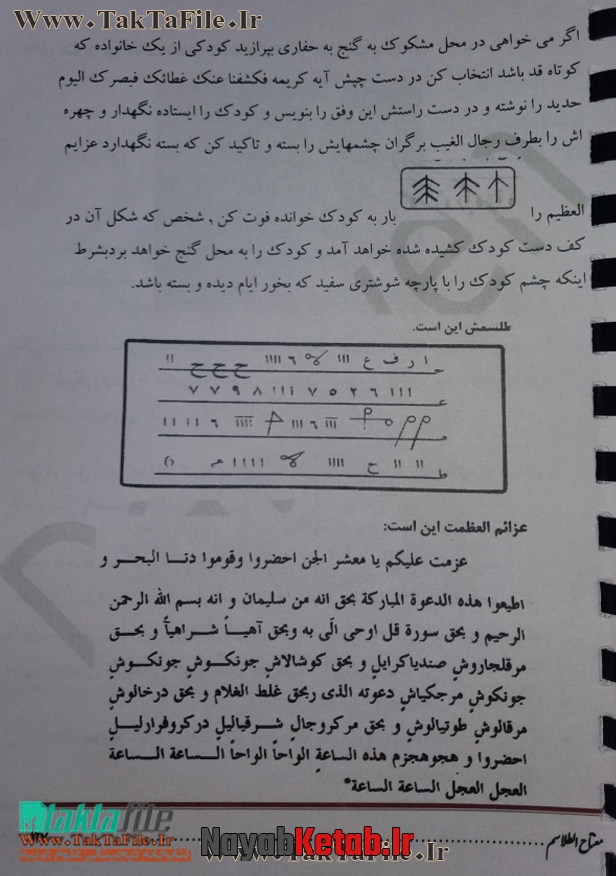 Www.TakTaFile.Ir
Www.TakTaFile.Ir
اگر می خواهی در محل مشکوک به گنج به حفاری بپرازید کودکی از یک خانواده که
کوتاه قد باشد انتخاب کن در دست چپش آیه کریمه فکشفنا عنک غطائک فبصرک الیوم
حدید را نوشته و در دست راستش این وفق را بنویس و کودک را ایستاده نگهدار و چهره
اش را بطرف رجال الغیب برگران چشمهایش را بسته و تاکید کن که بسته نگهدارد عزایم
العظیم را
بار به کودک خوانده فوت کن , شخص که شکل آن در
کف دست کودک کشیده شده خواهد آمد و کودک را به محل گنج خواهد بردبشرط
اینکه چشم کودک را با پارچه شوشتری سفید که بخور ایام دیده و بسته باشد.
طلسمش این است.
ا ر ف ع
ح ح ح
۷ ۷ ۹ ۸ ااا ۷ ۵ ۲ ۶ ااا
عزائم العظمت این است:
عزمت علیکم یا معشر الجن احضروا وقوموا دنـا البحـر و
اطیعوا هذه الدعوة المبارکة بحق انه من سلیمان و انه بسم الله الرحمن
الرحیم و بحق سورة قل اوحی الّی به وبحق آهیـاً شـراهیاً و بحـق
مرقلجاروشٍ صندیاکرایلٍ و بحق کوشالاشٍ جونکـوشٍ جونکـوشٍ
جونکوشٍ مرجکیاشٍ دعوته الذی ربحق غلط الغلام و بحق درخالوشٍ
مرقالوشٍ طوتیالوشٍ و بحق مرکروجالٍ شـرقیالیلٍ درکروفرارلیـلٍ
احضروا و هجوهجزم هذه الساعةٍ الواحاً الواحاً الـساعة الـساعة
العجل العجل الساعة الساعة*
مفتاح الطلاسم
taktafile
Www.TakTaFile.Ir
NayabKetab.Ir
Www.TakTaFile.Ir